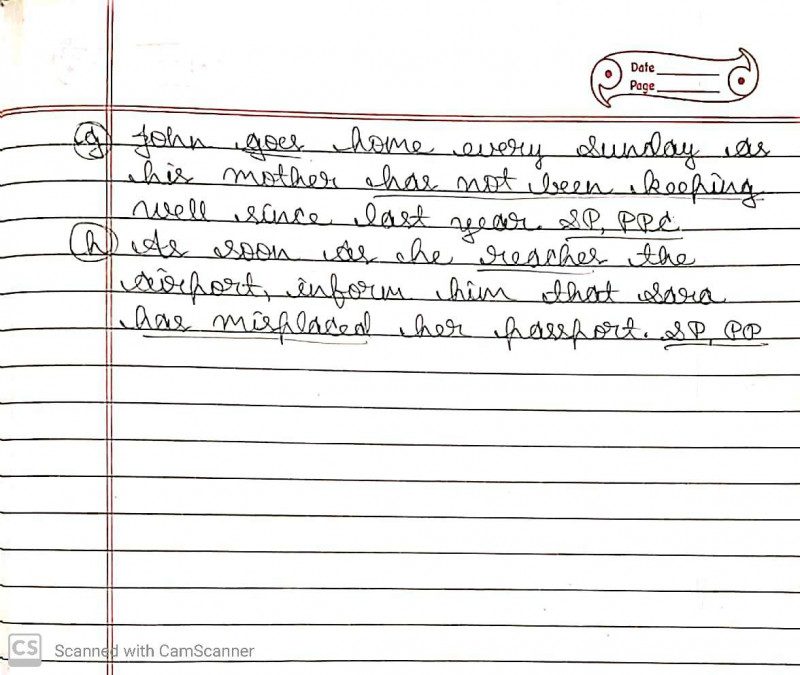 Date
Page
(g) John goes home every sunday as
his mother has not been keeping
well since last year. SP, PPC
(h) As soon as he reaches the
airport, inform him that sara
has misplaced her passport. SP, PP
CS Scanned with CamScanner